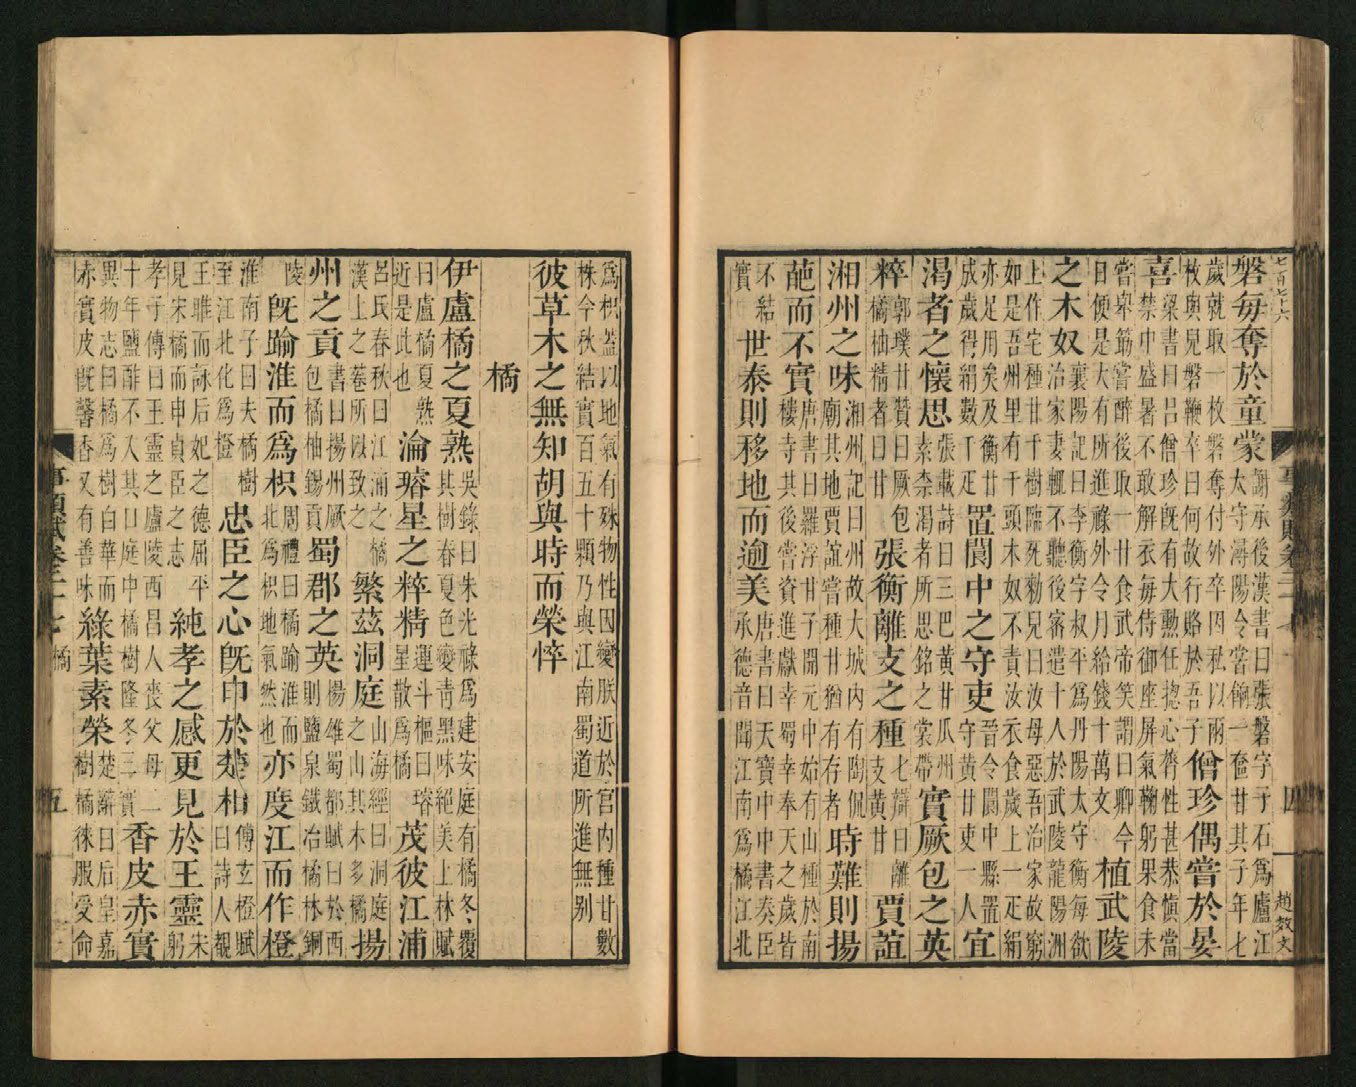 七百七十六
磐每奪於童蒙謝承後漢書曰張磐字子石爲廬江太守潯陽令嘗餉一奩甘其子年七
歲就取一枚磐奪付外卒因私以兩枚與兒磐鞭卒曰何故行賂於吾子僧珍偶嘗於晏
喜梁書曰呂僧珍旣有大勳任揔心膂性甚恭愼當禁中盛暑不敢解衣每侍御座屏氣鞠躬果食未
嘗舉筯嘗醉後取一甘食武帝笑謂曰卿今日便是大有所進祿外令月給錢十萬文植武陵
之木奴襄陽記曰李衡字叔平爲丹陽太守衡每欲治家妻輒不聽後密遣十人於武陵龍陽洲
上作宅種甘千樹臨死勑兒曰汝母惡吾治家故窮如是吾州里有千頭木奴不責汝衣食歲上一疋絹
亦足用矣及衡甘成歲得絹數千疋置閬中之守吏晉令閬中縣置守黃甘吏一人宜
渴者之懷思張載詩曰三巴黃甘瓜州素柰渴者所思銘之裳帶實厥包之英
粹郭璞甘贊曰厥包橘柚精者曰甘張衡離支之種七辯曰離支黃甘賈誼
湘州之味湘州記曰州故大城內有陶侃廟其地賈誼嘗種甘猶有存者時難則揚
葩而不實唐書曰羅浮甘子開元中始有山種於南樓寺其後嘗資進獻幸蜀幸奉天之歲皆
不結實世泰則移地而逾美唐書曰天寶中中書奏臣承德音聞江南爲橘江北
事類賦卷二十七 四 趙敎文
爲枳蓋以地氣有殊物性因變朕近於宮內種甘數株今秋結實百五十顆乃與江南蜀道所進無別
彼草木之無知胡與時而榮悴
橘
伊盧橘之夏熟吳錄曰朱光祿爲建安庭有橘冬覆其樹春夏色變靑黑味絕美上林賦
曰盧橘夏熟近是此也瀹璿星之粹精運斗樞曰璿星散爲橘茂彼江浦
呂氏春秋曰江浦之橘漢上之菴所以致之繁茲洞庭山海經曰洞庭之山其木多橘揚
州之貢書曰揚州厥包橘柚錫貢蜀郡之英楊雄蜀都賦曰於西則鹽泉鐵冶橘林銅
陵旣踰淮而爲枳周禮曰橘踰淮而北爲枳地氣然也亦度江而作橙
淮南子曰夫橘樹至江北化爲橙忠臣之心旣印於楚相傅玄橙賦曰詩人覩
王雎而詠后妃之德屈平見宋橘而申貞臣之志純孝之感更見於王靈宋躬
孝子傳曰王靈之廬陵西昌人喪父母二十年鹽酢不入其口庭中橘樹隆冬三實香皮赤實
異物志曰橘爲樹白華而赤實皮旣馨香又有善味綠葉素榮楚辭曰后皇嘉樹橘徠服受命
事類賦卷二十七 橘 五